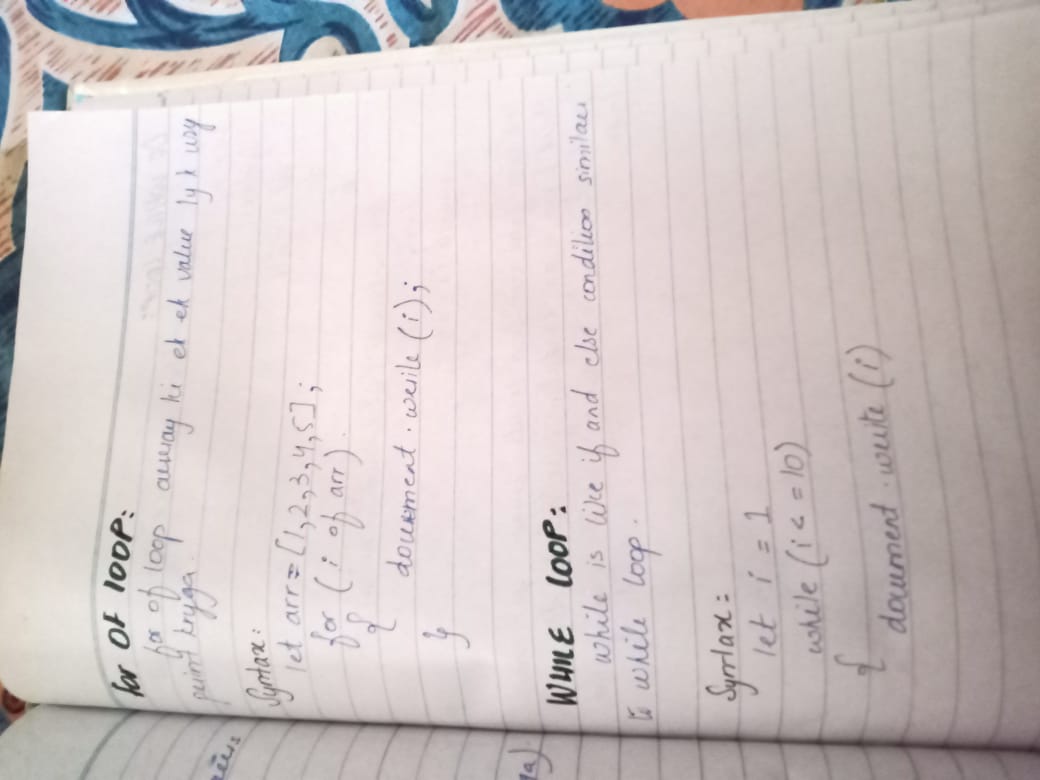 for OF lOOP:
for of loop array ki ek ek value lyk usy
print kryga.
Syntax:
let arr = [1,2,3,4,5];
for (i of arr)
{
document.write (i);
}
WHILE LOOP:
while is like if and else condition similar
to while loop.
Syntax:
let i = 1
while (i <= 10)
{
document.write (i)